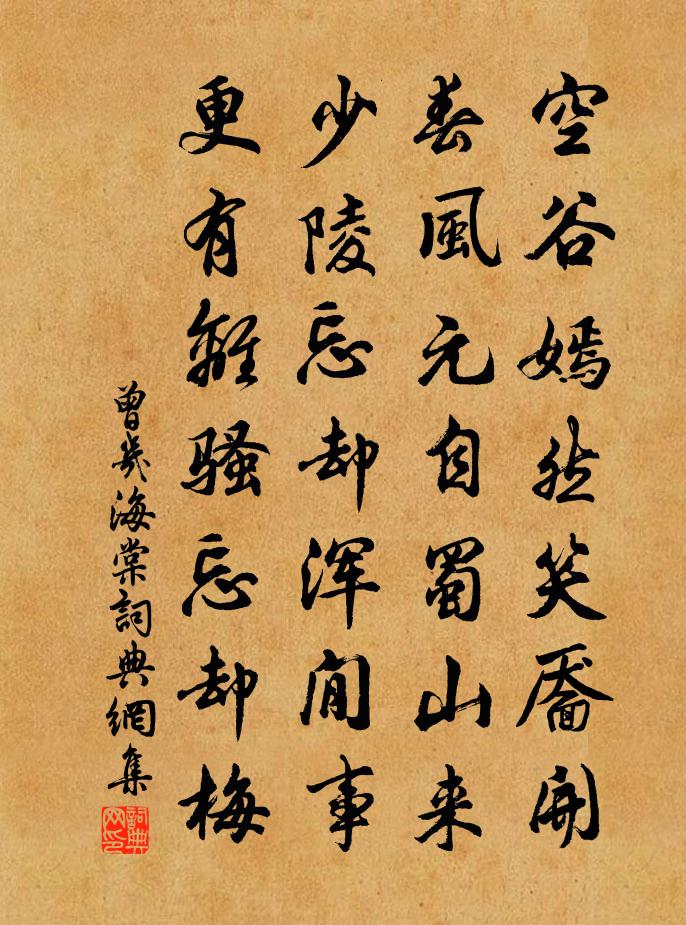 空谷嫣然笑靨開
春風元自蜀山来
少陵忘却渾閒事
更有離騷忘却梅
曾幾海棠詞典網集
詞典网印